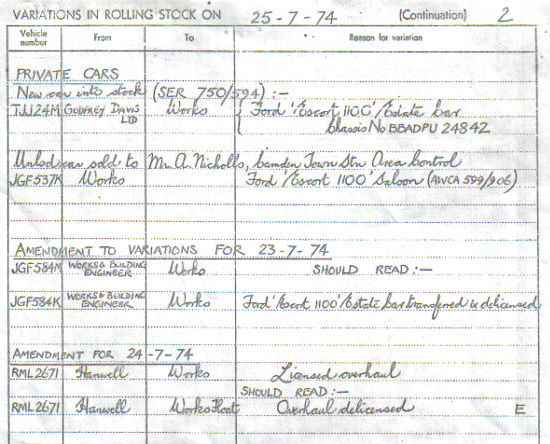 VARIATIONS IN ROLLING STOCK ON 25-7-74 (Continuation) 2
Vehicle number From To Reason for variation
PRIVATE CARS
New car into stock (SER 750/594) :-
TJJ24M GODFREY DAVIS LTD Works Ford 'Escort 1100' Estate Car
Chassis No BBADPU 24842
Unlsd car sold to Mr. A. Nicholls, Camden Town Stn Area Control
JGF537K Works Ford 'Escort 1100' Saloon (AWCA 599/906)
AMENDMENT TO VARIATIONS FOR 23-7-74
JGF584M WORKS & BUILDING ENGINEER Works SHOULD READ :-
JGF584K WORKS & BUILDING ENGINEER Works Ford 'Escort 1100' Estate Car transferred & delicensed
AMENDMENT FOR 24-7-74
RML2671 Hanwell Works Licensed overhaul
SHOULD READ :-
RML2671 Hanwell Works Float Overhaul delicensed E